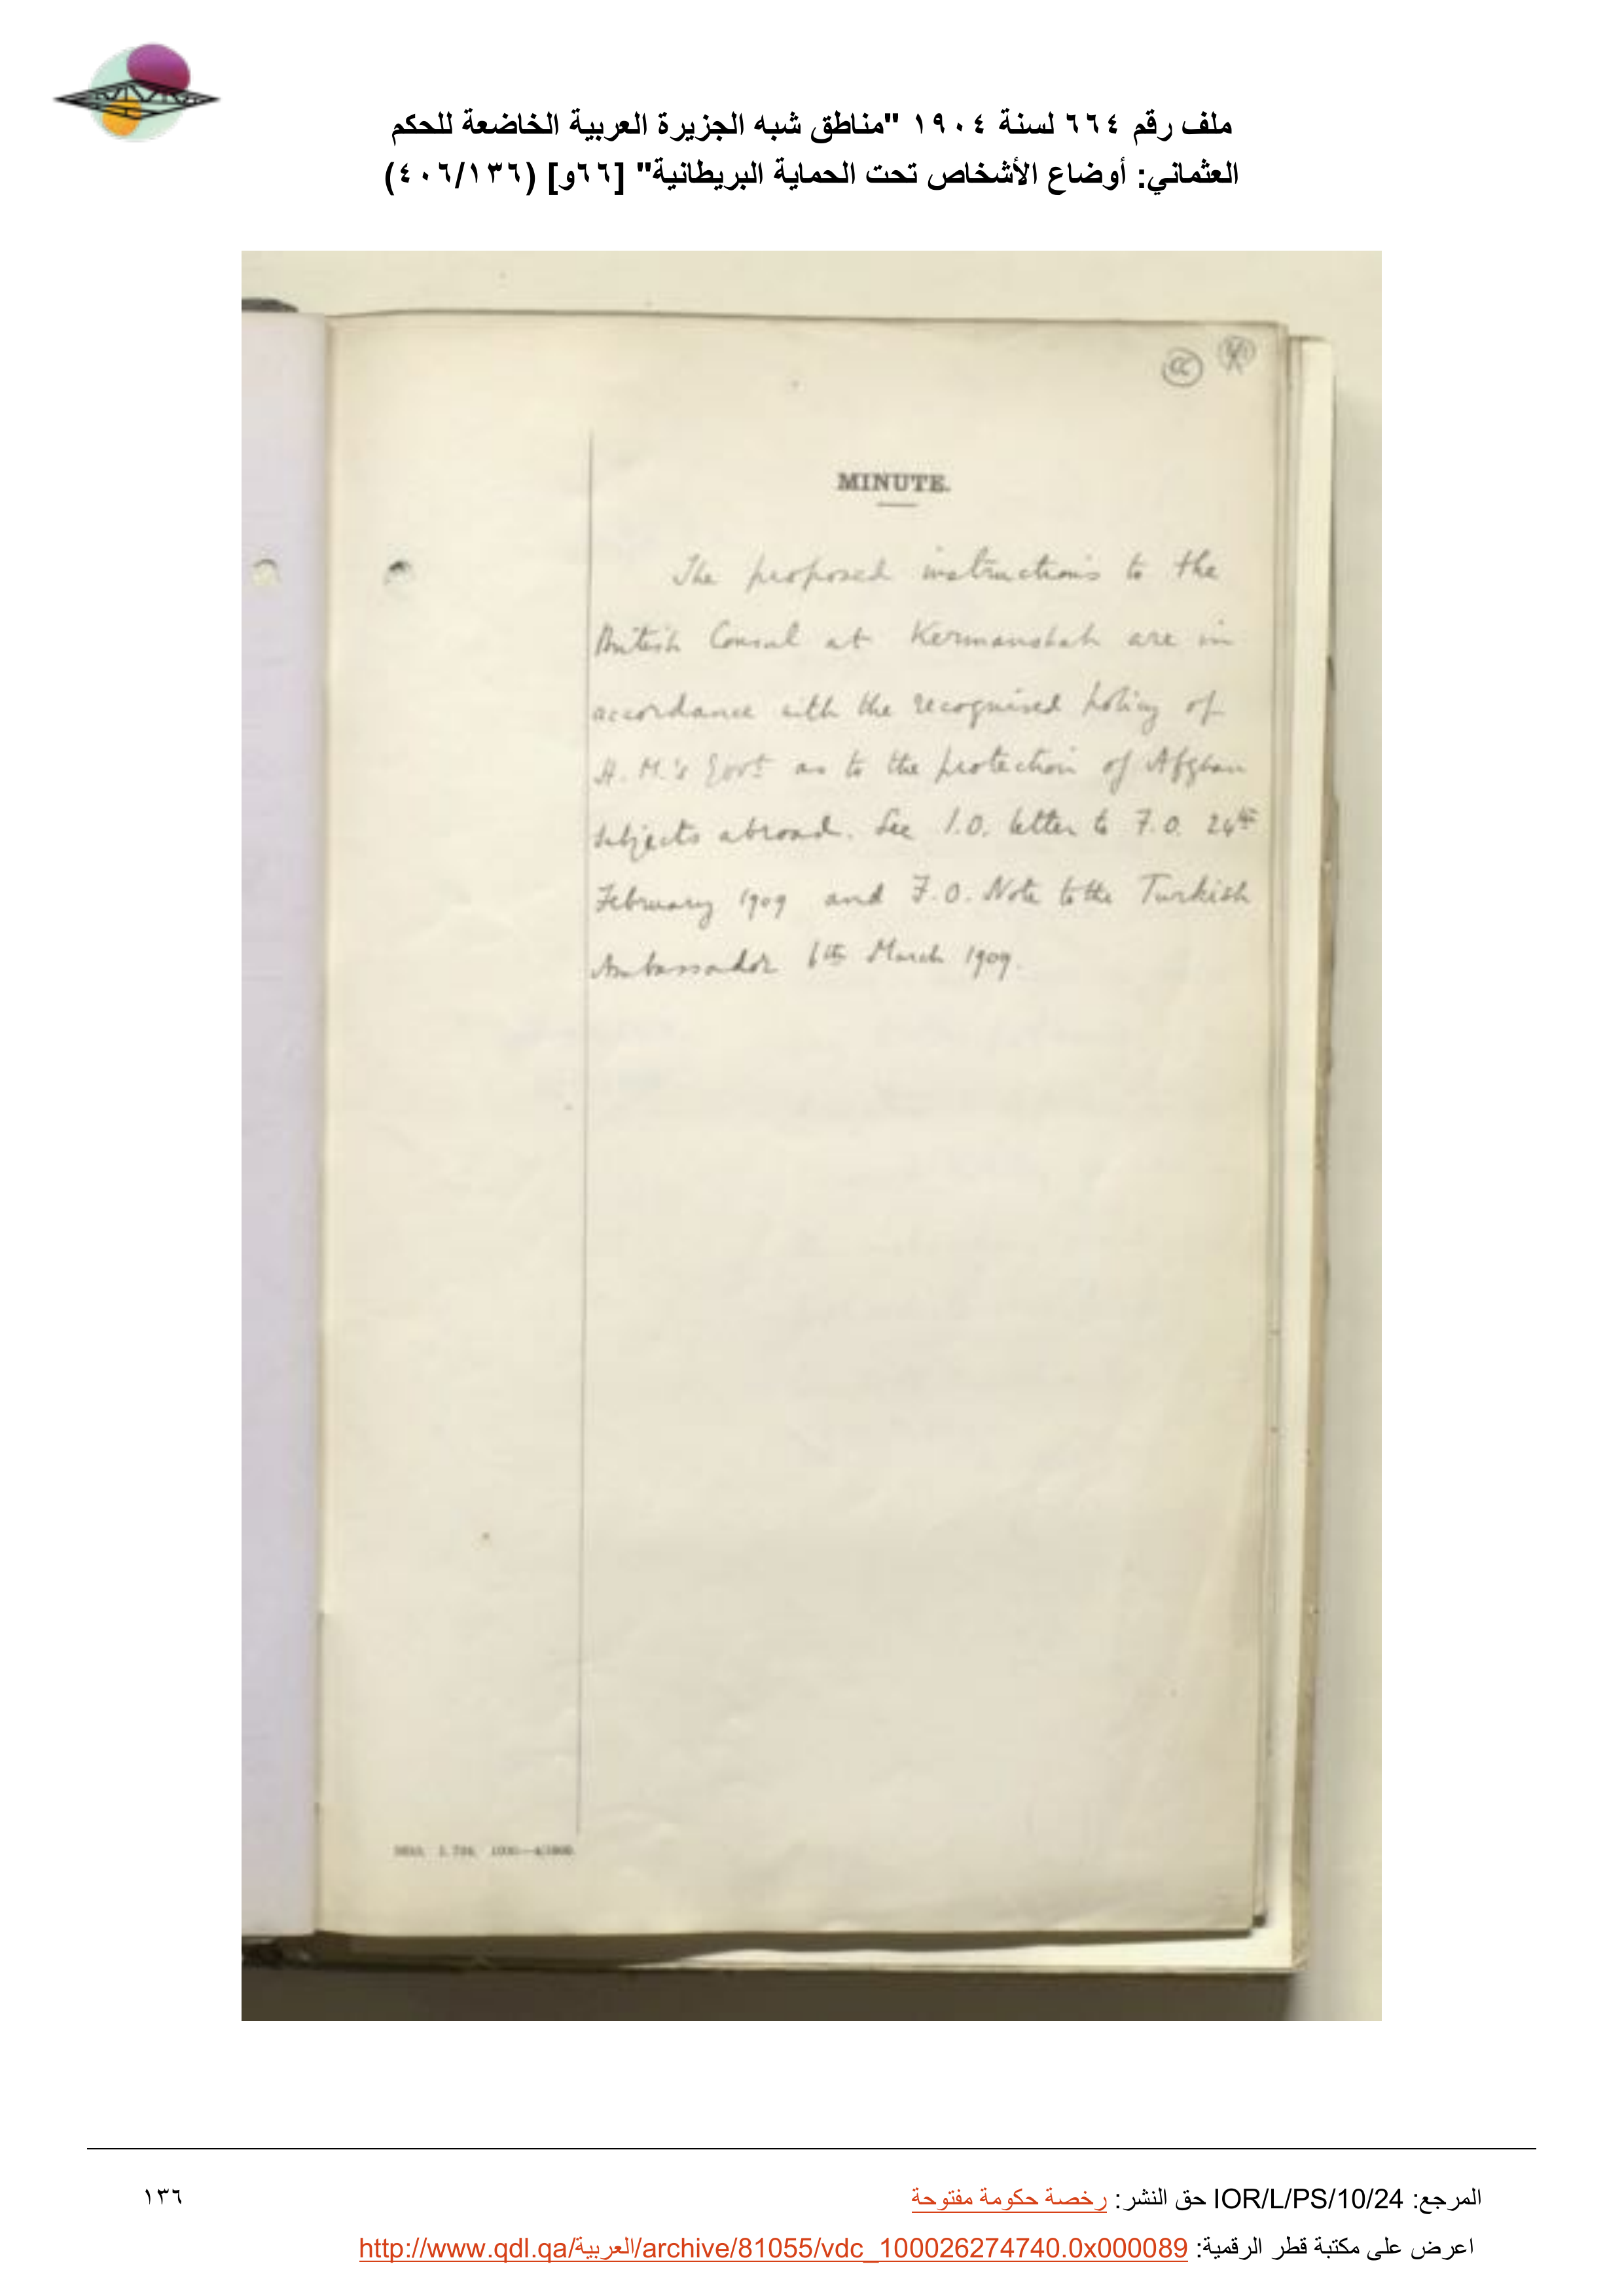 ملف رقم ٦٦٤ لسنة ١٩٠٤ "مناطق شبه الجزيرة العربية الخاضعة للحكم
العثماني: أوضاع الأشخاص تحت الحماية البريطانية" [٦٦و] (٤٠٦/١٣٦)
MINUTE.
The proposed instructions to the
British Consul at Kermanshah are in
accordance with the recognised policy of
H.M.'s Govt as to the protection of Afghan
subjects abroad. See I.O. letter to F.O. 24th
February 1909 and F.O. Note to the Turkish
Ambassador 6th March 1909.
المرجع: IOR/L/PS/10/24 حق النشر: رخصة حكومة مفتوحة
١٣٦
اعرض على مكتبة قطر الرقمية: http://www.qdl.qa/العربية/archive/81055/vdc_100026274740.0x000089